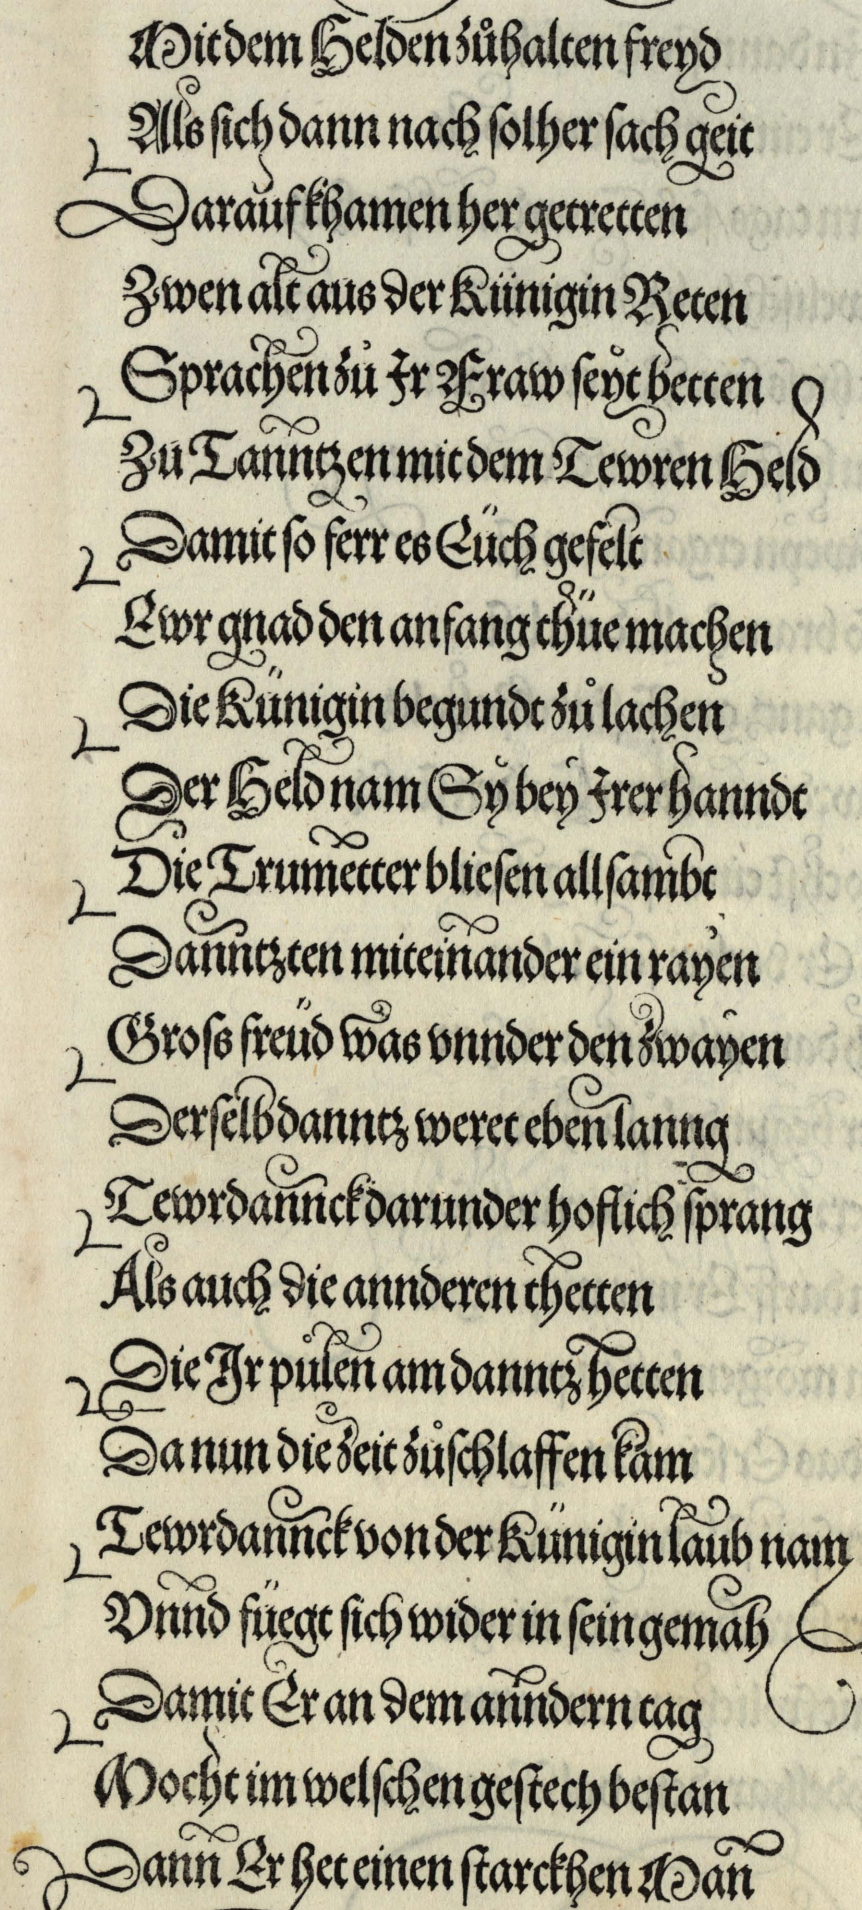 Mit dem Helden zůhalten freyd
Als sich dann nach solher sach geit
Darauf khamen her getretten
Zwen alt aus der Künigin Reten
Sprachen zů Ir Fraw seyt betten
Zu Tanntzen mit dem Tewren Held
Damit so ferr es Eüch gefelt
Ewr gnad den anfang thüe machen
Die Künigin begundt zů lachen
Der Held nam Sy bey Irer hanndt
Die Trumetter bliesen allsambt
Danntzten miteinander ein rayen
Gross freüd was vnnder den zwayen
Derselb danntz weret eben lanng
Tewrdannck darunder hoflich sprang
Als auch die annderen thetten
Die Ir půlen am danntz hetten
Da nun die zeit zůschlaffen kam
Tewrdannck von der Künigin laub nam
Vnnd füegt sich wider in sein gemah
Damit Er an dem anndern tag
Mocht im welschen gestech bestan
Dann Er het einen starckhen Man